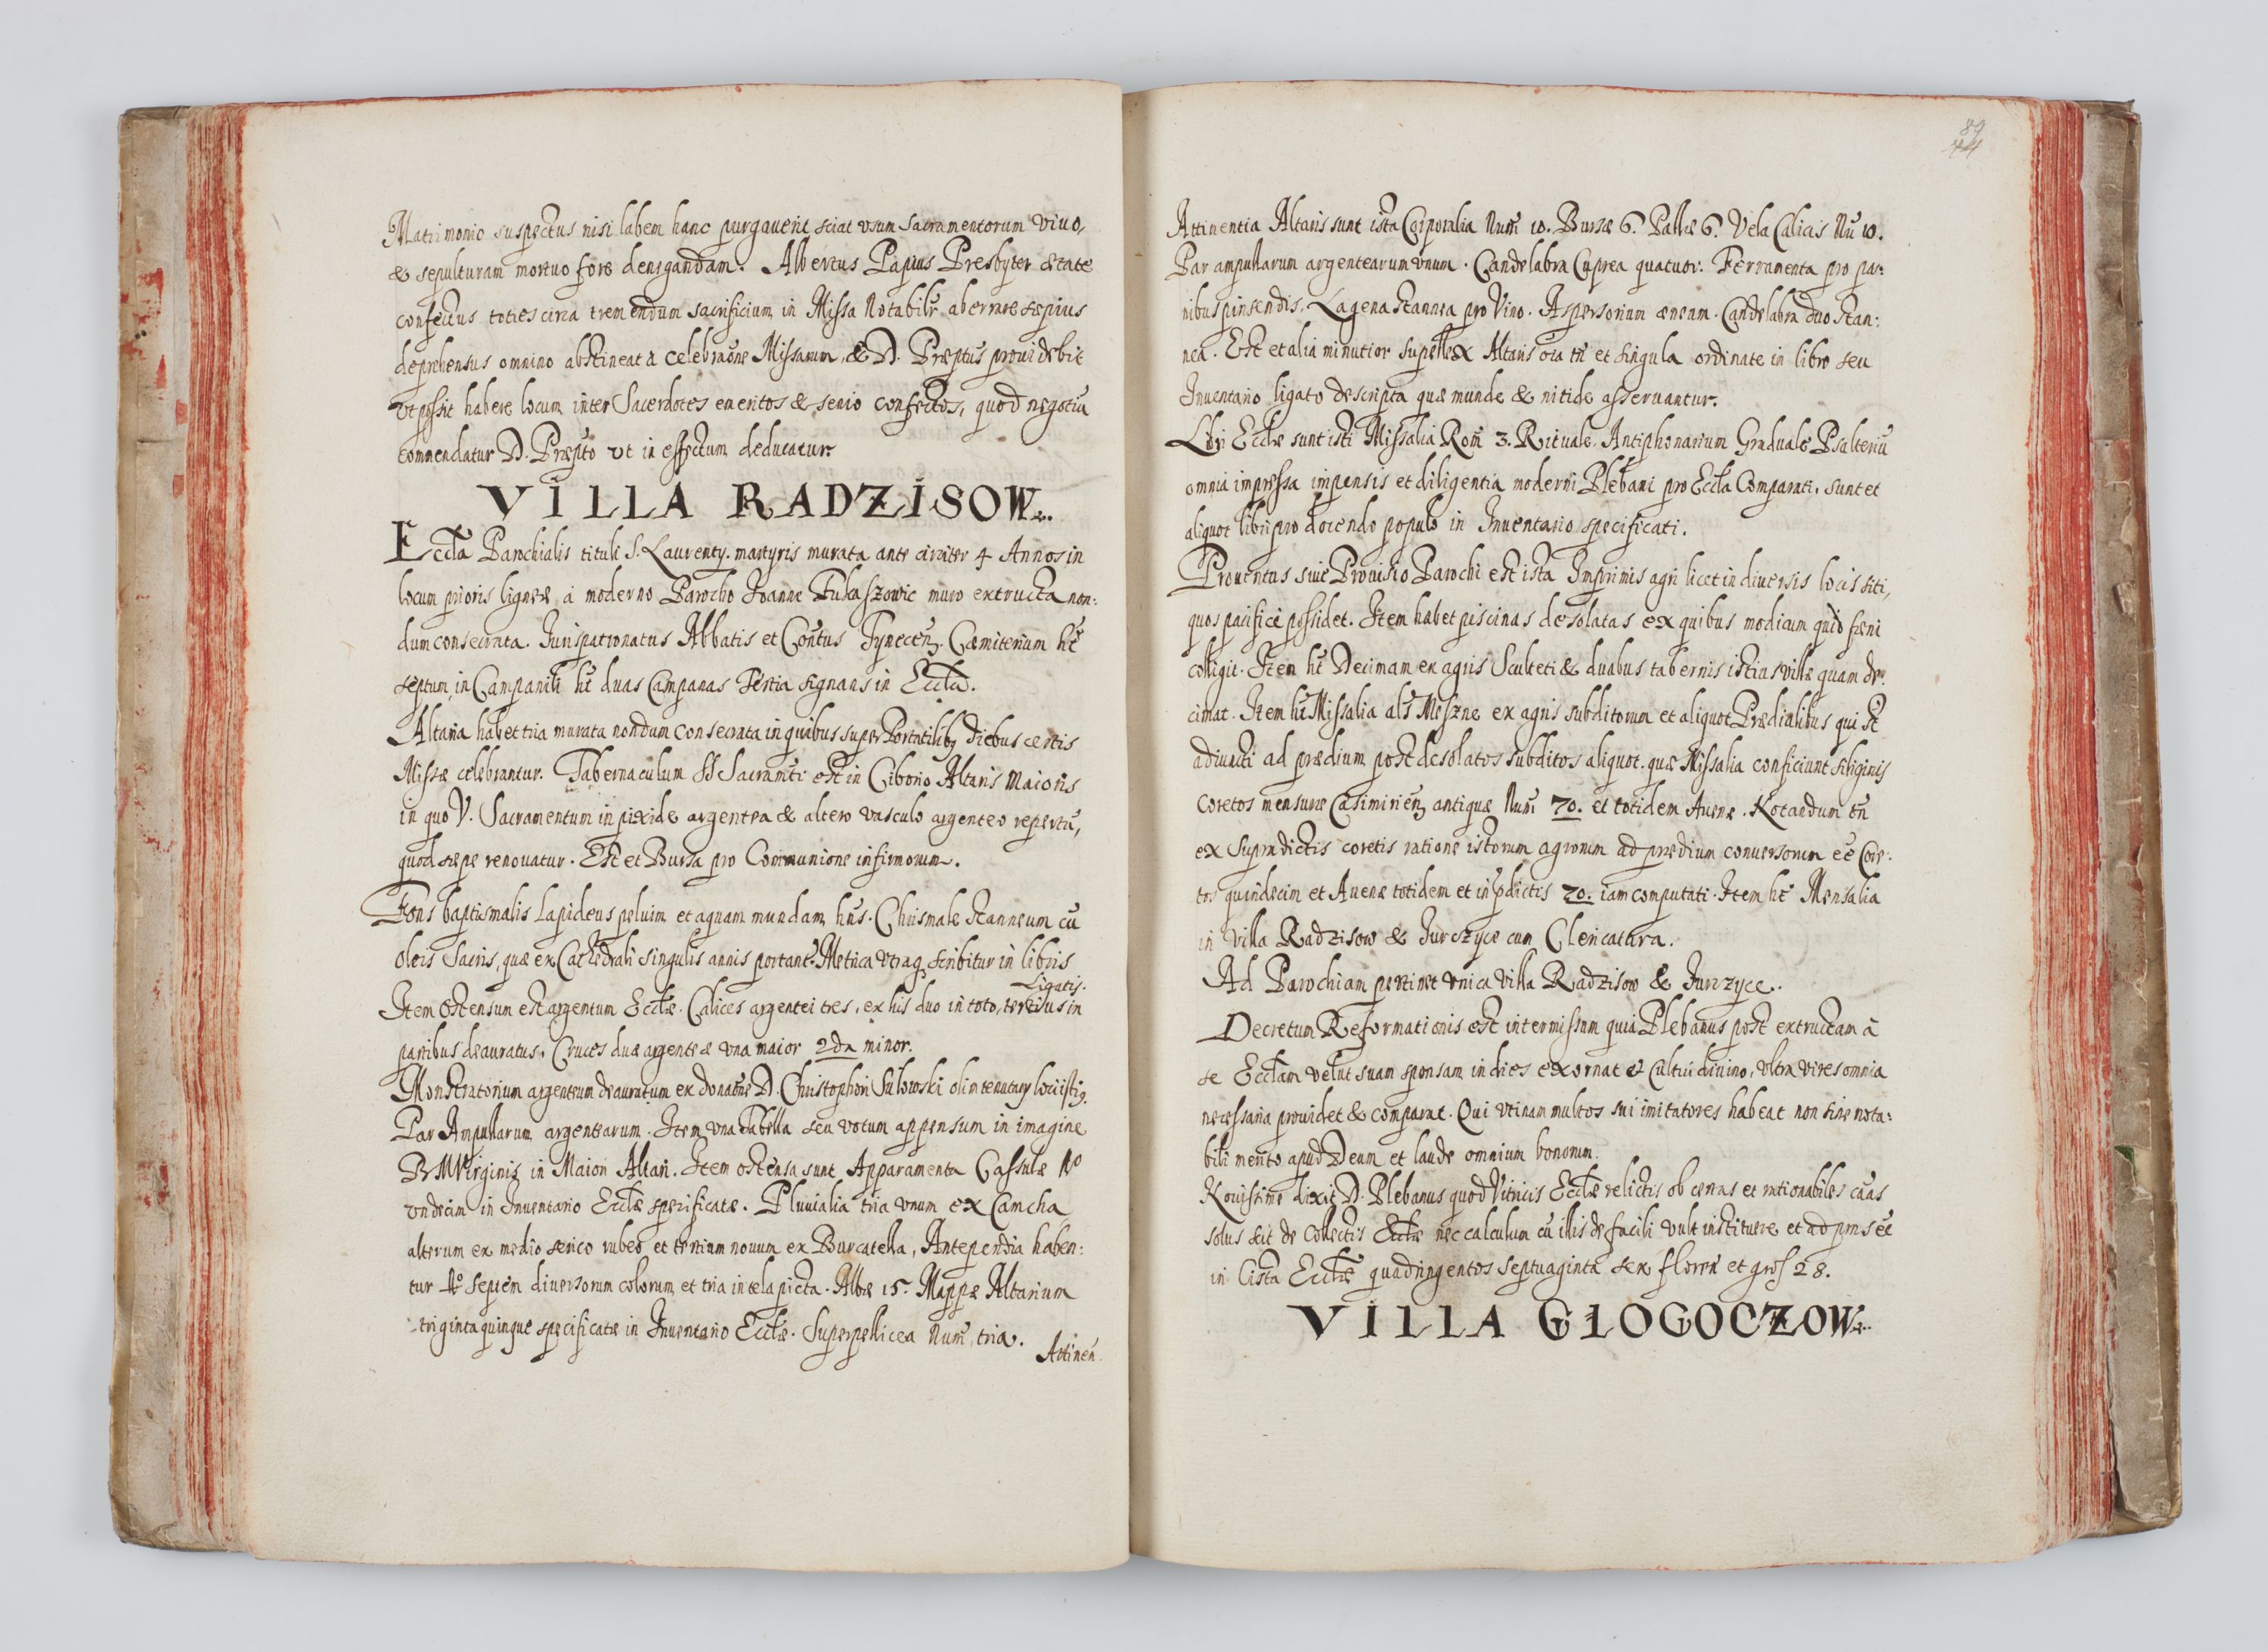 Matrimonio suspectus nisi labem hanc purgauerit sciat vsum Sacramentorum viuo,
& sepulturam mortuo fore denegandam. Albertus Papius Presbyter ætate
confectus toties circa tremendum sacrificium in Missa Notabilr aberrare sæpius
deprehensus omnino abstineat à celebraōne Missarum, & D. Præptus prouidebit
vt possit habere locum inter Sacerdotes emeritos & senio confectos, quod negotiū
commendatur D. Præpto vt in effectum deducatur.
VILLA RADZISOW.
Eccla Parochialis tituli S. Laurentÿ martyris murata ante circiter 4 Annos in
locum prioris ligneæ à moderno Parocho Joanne Fukaszowic muro extructa non:
dum consecrata. Jurispatronatus Abbatis et Contus Tynecen. Cæmiterium ht
septum, in Campanili ht duas Campanas Tertia signans in Eccla.
Altaria habet tria murata nondum consecrata in quibus super Portatilibȝ diebus certis
Missæ celebrantur. Tabernaculum SS Sacramti est in Ciborio Altaris Maioris
in quo V. Sacramentum in pixide argentea & altero vasculo argenteo repertū,
quod sæpe renouatur. Est et Bursa pro Communione infirmorum.
Fons baptismalis Lapideus peluim et aquam mundam hns. Chrismale stanneum cū
oleis Sacris, quæ ex Cathedrali singulis annis portant. Metrica vtraq scribitur in libris
Ligatis.
Item Ostensum est argentum Ecclæ. Calices argentei tres, ex his duo in toto, tertius in
partibus deauratus, Cruces duæ argenteæ vna maior 2da minor.
Monstratorium argenteum deauratum ex donatōe D. Christophori Sulowski olim tenutarÿ loci istiꝯ.
Par Ampullarum argentearum. Item vna tabella seu votum appensum in imagine
B M Virginis in Maiori Altari. Item ostensa sunt Apparamenta Casulæ No
vndecim in Inuentario Ecclæ specificatæ. Pluuialia tria vnum ex Camcha
alterum ex medio serico rubeo et tertium nouum ex Burcatella, Antependia haben:
tur No septem diuersorum colorum et tria in tela picta. Albæ 15. Mappæ Altarium
triginta quinque specificatæ in Inuentario Ecclæ. Superpellicea Num. tria.
Attinen
89
44
Attinentia Altaris sunt ista Corporalia Num 10. Bursæ 6. Pallæ 6. Vela Calicis Nū 10.
Par ampullarum argentearum vnum. Candelabra Cuprea quatuor. Ferramenta pro pa:
nibus pinsendis. Lagena stannea pro Vino. Aspersorium æneum. Candelabra duo stan:
nea. Est et alia minutior supellex Altaris oia tn et singula ordinate in libro seu
Inuentario ligato descripta quæ munde & nitide asseruantur.
Libri Ecclæ sunt isti Missalia Rom 3. Rituale. Antiphonarium Graduale Psalteriū
omnia impressa impensis et diligentia moderni Plebani pro Eccla Comparati, sunt et
aliquot libri pro docendo populo in Inuentario specificati.
Prouentus siue Prouisio Parochi est ista Imprimis agri licet in diuersis locis siti,
quos pacifice possidet. Item habet piscinas desolatas ex quibus modicum quid fœni
colligit. Item ht Decimam ex agris Sculteti & duabus tabernis istius villæ quam de:
cimat. Item ht Missalia als Meszne ex agris subditorum et aliquot Prædialibus qui st
adiuncti ad prædium post desolatos subditos aliquot. quæ Missalia conficiunt siliginis
coretos mensuræ Casimirien antiquæ Num 70. et totidem Auenæ. Notandum tn
ex supradictis coretis ratione istorum agrorum ad prædium conuersorum eē Core:
tos quindecim et Auenæ totidem et in pdictis 70. iam computati. Item ht Mensalia
in villa Radzisow & Jurczyce cum Clericatura.
Ad Parochiam pertinet vnica Villa Radzisow & Jurczyce.
Decretum Reformationis est intermissum quia Plebanus post extructam à
se Ecclam velut suam sponsam in dies exornat et Cultui diuino, vltra vires omnia
necessaria prouidet & comparat. Qui vtinam multos sui imitatores habeat non sine nota:
bili merito apud Deum et laude omnium bonorum.
Nouissime dixit D. Plebanus quod Vitricis Ecclæ relictis ob certas et rationabiles cāas
solus scit de Collectis Ecclæ nec calculum cū illis de facili vult instituere et ad pns eē
in Cista Ecclæ quadringentos septuaginta sex floren et gros 28.
VILLA GŁOGOCZOW.